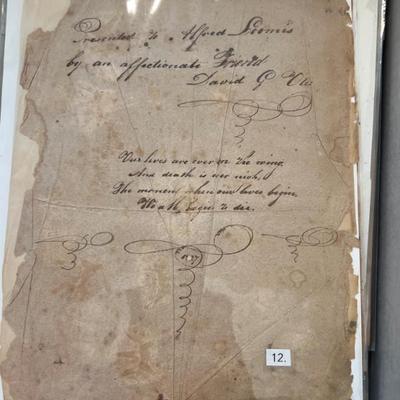 Presented to Alfred Loomis
by an affectionate Friend
David G
Our lives are ever on the wing,
And death is ever nigh,
The moment when our lives begin,
We all begin to die.
12.